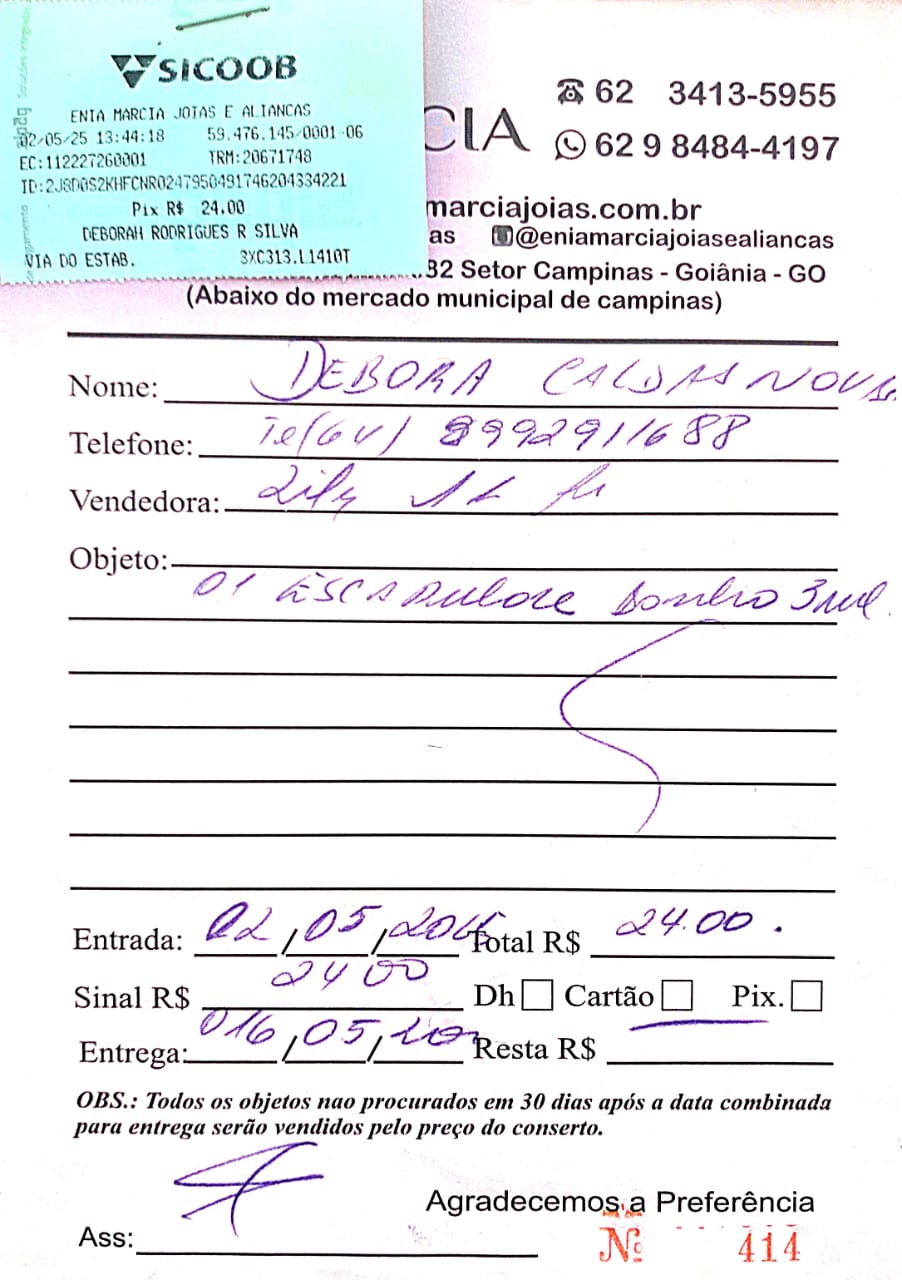 SICOOB
ENIA MARCIA JOIAS E ALIANCAS
02/05/25 13:44:18 59.476.145/0001-06
EC:112227260001 TRM:20671748
ID:2J8D0S2KHFCNR0247950491746204334221
Pix R$ 24.00
DEBORAH RODRIGUES R SILVA
VIA DO ESTAB. 3XC313.L1410T
CIA
62 3413-5955
62 9 8484-4197
marciajoias.com.br
as @eniamarciajoiasealiancas
32 Setor Campinas - Goiânia - GO
(Abaixo do mercado municipal de campinas)
Nome: DEBORA CALDAS NOVAS
Telefone: 992911688
Vendedora:
Objeto:
01
Entrada: 02/05/ Total R$ 24.00.
Sinal R$ 2400 Dh Cartão Pix.
Entrega: 016/05/ Resta R$
OBS.: Todos os objetos nao procurados em 30 dias após a data combinada
para entrega serão vendidos pelo preço do conserto.
Agradecemos a Preferência
Ass:
Nº 414